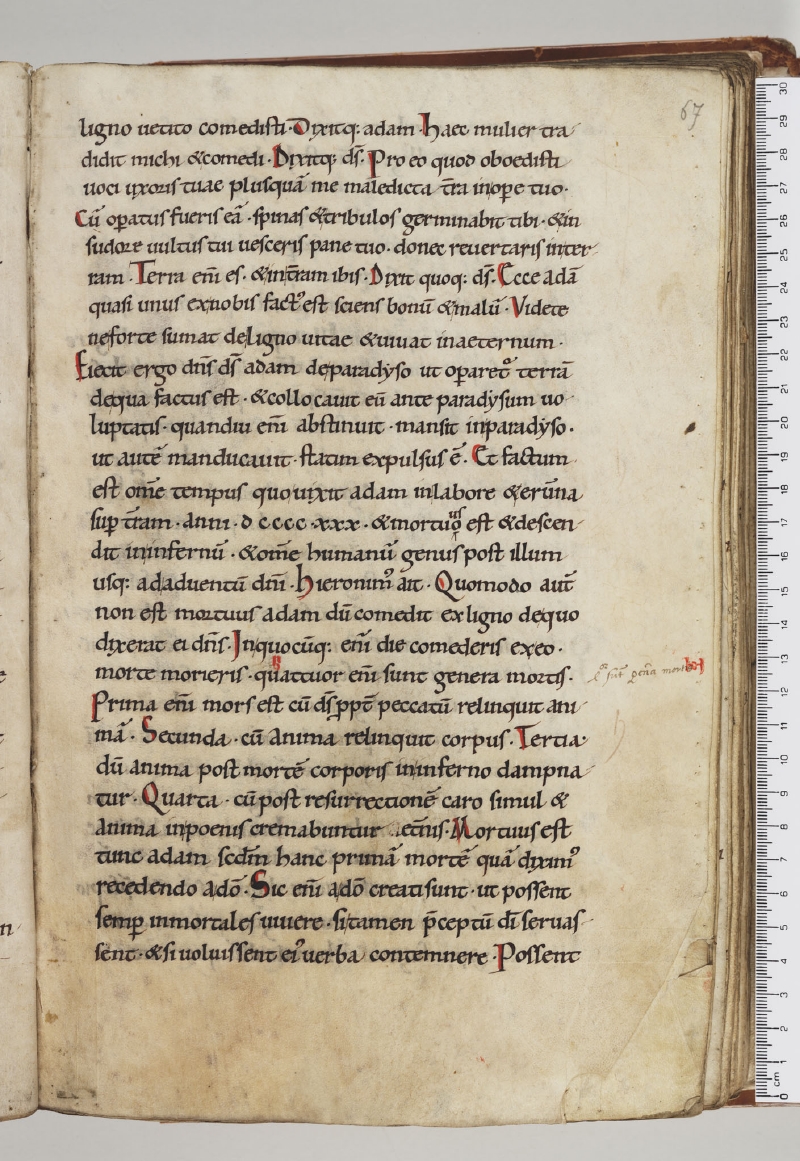 67
ligno uetito comedisti· Dixitq; adam· Haec mulier tra
didit michi &comedi· Dixitq; d̄s· Pro eo quod oboedisti
uoci uxoris tuae plusquā me maledicta t̄ra inope tuo·
Cū opatus fueris eā· spinas &tribulos germinabit tibi· &in
sudore uultus tui uesceris pane tuo· donec reuertaris inter
ram· Terra eni̅ es· &int̄ram ibis· Dixit quoq; d̄s· Ecce adā
quasi unus exnobis fact᾽ est sciens bonū &malū· Videte
neforte sumat deligno uitae &uiuat inaeternum·
Eiecit ergo dn̄s d̄s adam deparadyso ut operaret᾽ terrā
dequa factus est· &collocauit eū ante paradysum uo
luptatis· quandiu eni̅ abstinuit· mansit inparadyso·
ut autē manducauit· statim expulsus ē· Et factum
est om̄e tempus quo uixit adam inlabore &erūna
sup t̄ram· anni· d cccc·xxx· &mortuus est &descen
dit ininfernū· &om̄e humanū genus post illum
usq; adaduentū dn̄i· Hieronim᾽ ait· Quomodo aut̄
non est mortuus adam dū comedit exligno dequo
dixerat ei dn̄s· Inquocūq; eni̅ die comederis exeo·
morte morieris· quattuor eni̅ sunt genera mortis·
Prima eni̅ mors est cū d̄s ppt̄ peccatū relinquit ani
mā· Secunda· cū anima relinquit corpus· Tertia
dū anima post mortē corporis ininferno dampna
tur· Quarta· cū post resurrectionē caro simul &
anima inpoenis cremabuntur ·Mortuus est
tunc adam scd̄m hanc primā mortē quā dixim᾽
recedendo adō· Sic eni̅ adō creati sunt· ut possent
semp inmortales uiuere· si tamen p̄ceptū dī seruas
sent· &si uoluissent ei᾽ uerba contemnere· Possent